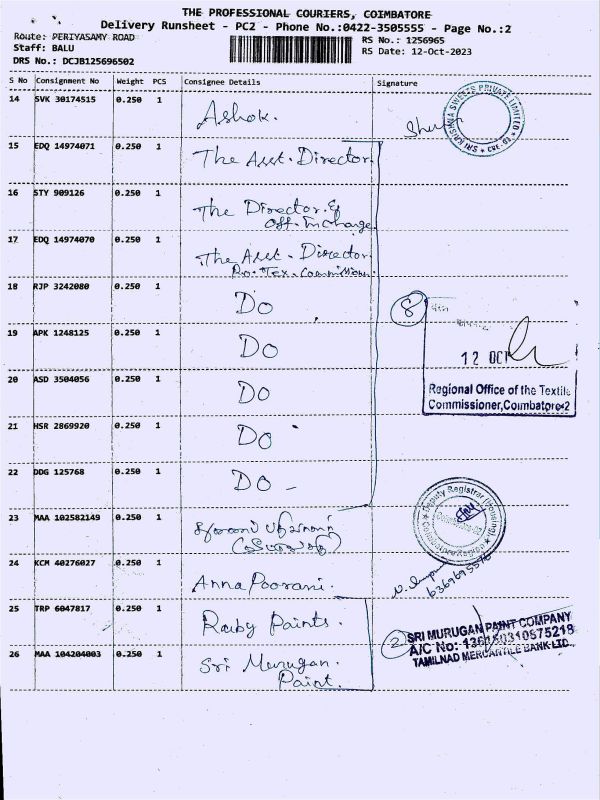 THE PROFESSIONAL COURIERS, COIMBATORE
Delivery Runsheet - PC2 - Phone No.:0422-3505555 - Page No.:2
Route: PERIYASAMY ROAD
RS No.: 1256965
Staff: BALU
RS Date: 12-Oct-2023
DRS No.: DCJB125696502
S No Consignment No Weight PCS Consignee Details Signature
14 SVK 30174515 0.250 1 Ashok.
SRI KRISHNA SWEETS PRIVATE LIMITED
15 EDQ 14974071 0.250 1 The Asst. Director
16 STY 909126 0.250 1 The Director &
Off. Incharge
17 EDQ 14974070 0.250 1 The Asst. Director
Ro. Tex. Commissioner.
18 RJP 3242080 0.250 1 Do
8
19 APK 1248125 0.250 1 Do
12 OCT
20 ASD 3504056 0.250 1 Do
Regional Office of the Textile
Commissioner, Coimbatore-2
21 HSR 2869920 0.250 1 Do
22 DDG 125768 0.250 1 Do -
23 MAA 102582149 0.250 1
Deputy Registrar (Housing)
Coimbatore Region
24 KCM 40276027 0.250 1 Anna Poorani.
25 TRP 6047817 0.250 1 Ruby Paints.
2 SRI MURUGAN PAINT COMPANY
TAMILNAD MERCANTILE BANK LTD.
26 MAA 104204003 0.250 1 Sri Murugan.
Paint.